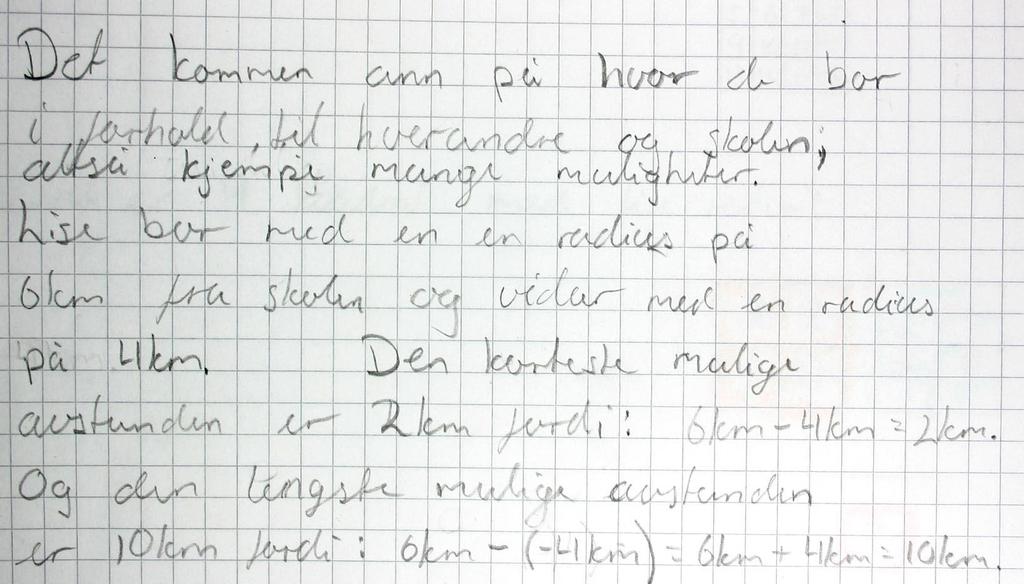 Det kommer ann på hvor de bor
i forhold til hverandre og skolen;
altså kjempe mange muligheter.
Lise bor med en en radius på
6km fra skolen og vidar med en radius
på 4km. Den korteste mulige
avstanden er 2km fordi: 6km - 4km = 2km.
Og den lengste mulige avstanden
er 10km fordi: 6km - (-4km) = 6km + 4km = 10km.